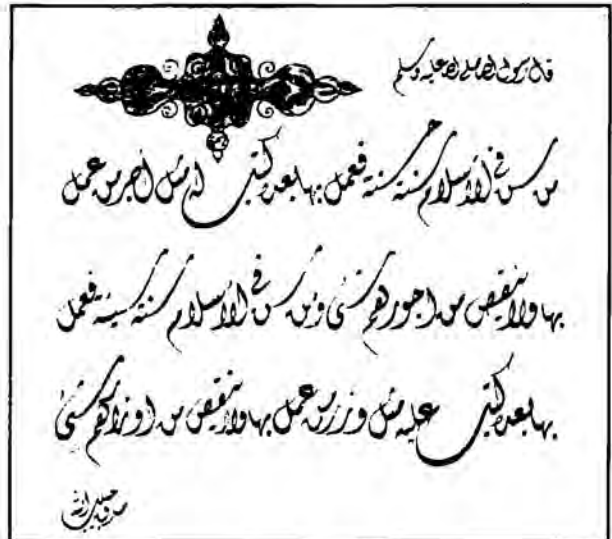 قال رسول الله صلى الله عليه وسلم
من سن في الأسلام سنة حسنة فعمل بها بعده كتب له مثل أجر من عمل
بها ولا ينقص من اجورهم شئ ومن سن في الاسلام سنة سيئة فعمل
بها بعده كتب عليه مثل وزر من عمل بها ولا ينقص من اوزارهم شئ